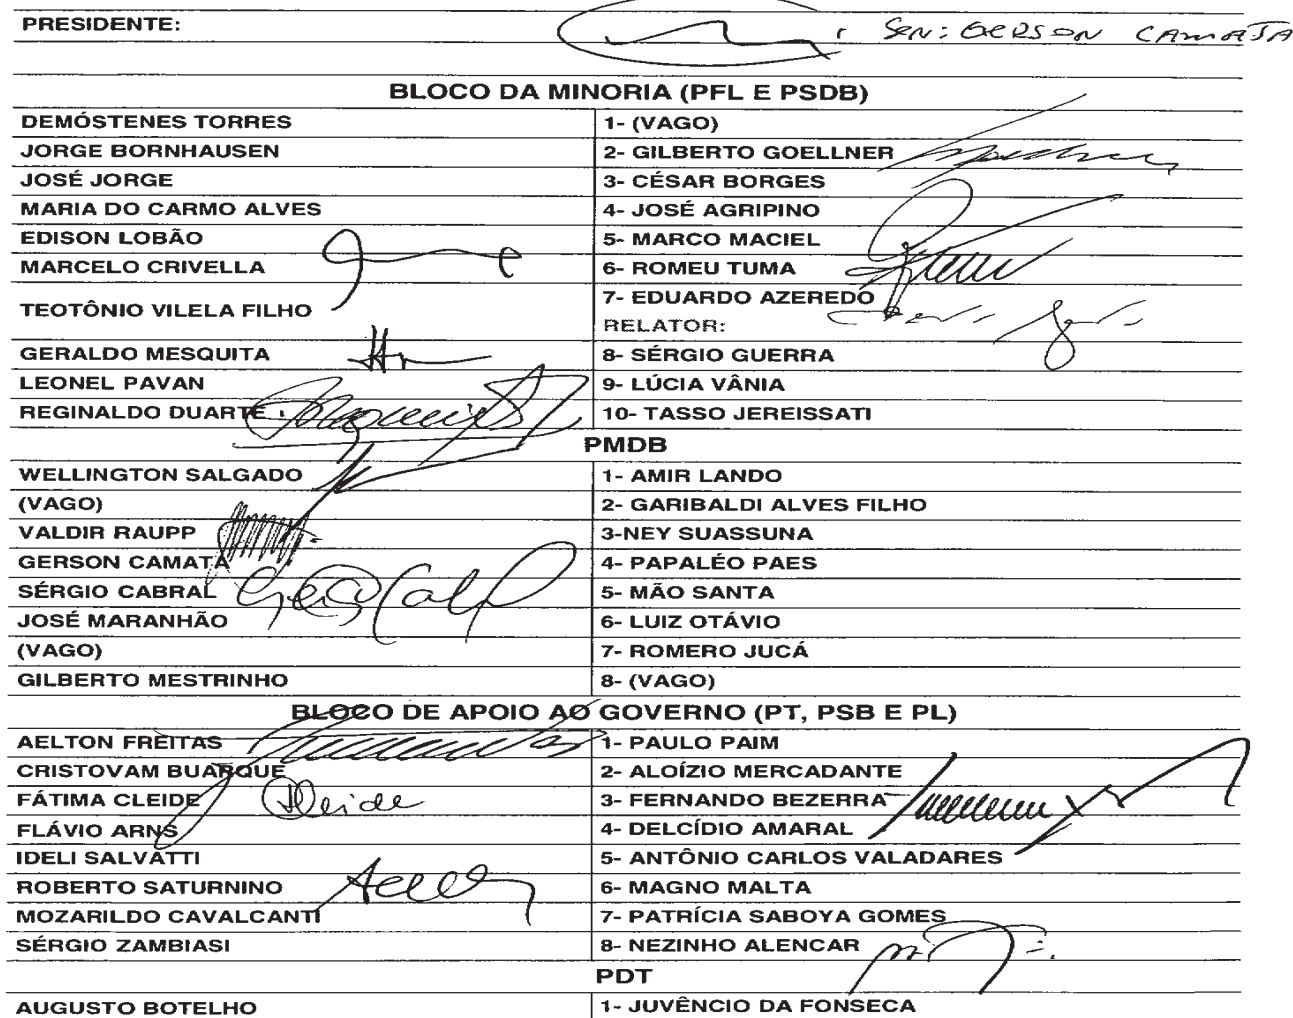 PRESIDENTE: SEN: GERSON CAMATA
BLOCO DA MINORIA (PFL E PSDB)
DEMÓSTENES TORRES 1- (VAGO)
JORGE BORNHAUSEN 2- GILBERTO GOELLNER
JOSÉ JORGE 3- CÉSAR BORGES
MARIA DO CARMO ALVES 4- JOSÉ AGRIPINO
EDISON LOBÃO 5- MARCO MACIEL
MARCELO CRIVELLA 6- ROMEU TUMA
TEOTÔNIO VILELA FILHO 7- EDUARDO AZEREDO
RELATOR:
GERALDO MESQUITA 8- SÉRGIO GUERRA
LEONEL PAVAN 9- LÚCIA VÂNIA
REGINALDO DUARTE 10- TASSO JEREISSATI
PMDB
WELLINGTON SALGADO 1- AMIR LANDO
(VAGO) 2- GARIBALDI ALVES FILHO
VALDIR RAUPP 3-NEY SUASSUNA
GERSON CAMATA 4- PAPALÉO PAES
SÉRGIO CABRAL 5- MÃO SANTA
JOSÉ MARANHÃO 6- LUIZ OTÁVIO
(VAGO) 7- ROMERO JUCÁ
GILBERTO MESTRINHO 8- (VAGO)
BLOCO DE APOIO AO GOVERNO (PT, PSB E PL)
AELTON FREITAS 1- PAULO PAIM
CRISTOVAM BUARQUE 2- ALOÍZIO MERCADANTE
FÁTIMA CLEIDE Cleide 3- FERNANDO BEZERRA
FLÁVIO ARNS 4- DELCÍDIO AMARAL
IDELI SALVATTI 5- ANTÔNIO CARLOS VALADARES
ROBERTO SATURNINO 6- MAGNO MALTA
MOZARILDO CAVALCANTI 7- PATRÍCIA SABOYA GOMES
SÉRGIO ZAMBIASI 8- NEZINHO ALENCAR
PDT
AUGUSTO BOTELHO 1- JUVÊNCIO DA FONSECA